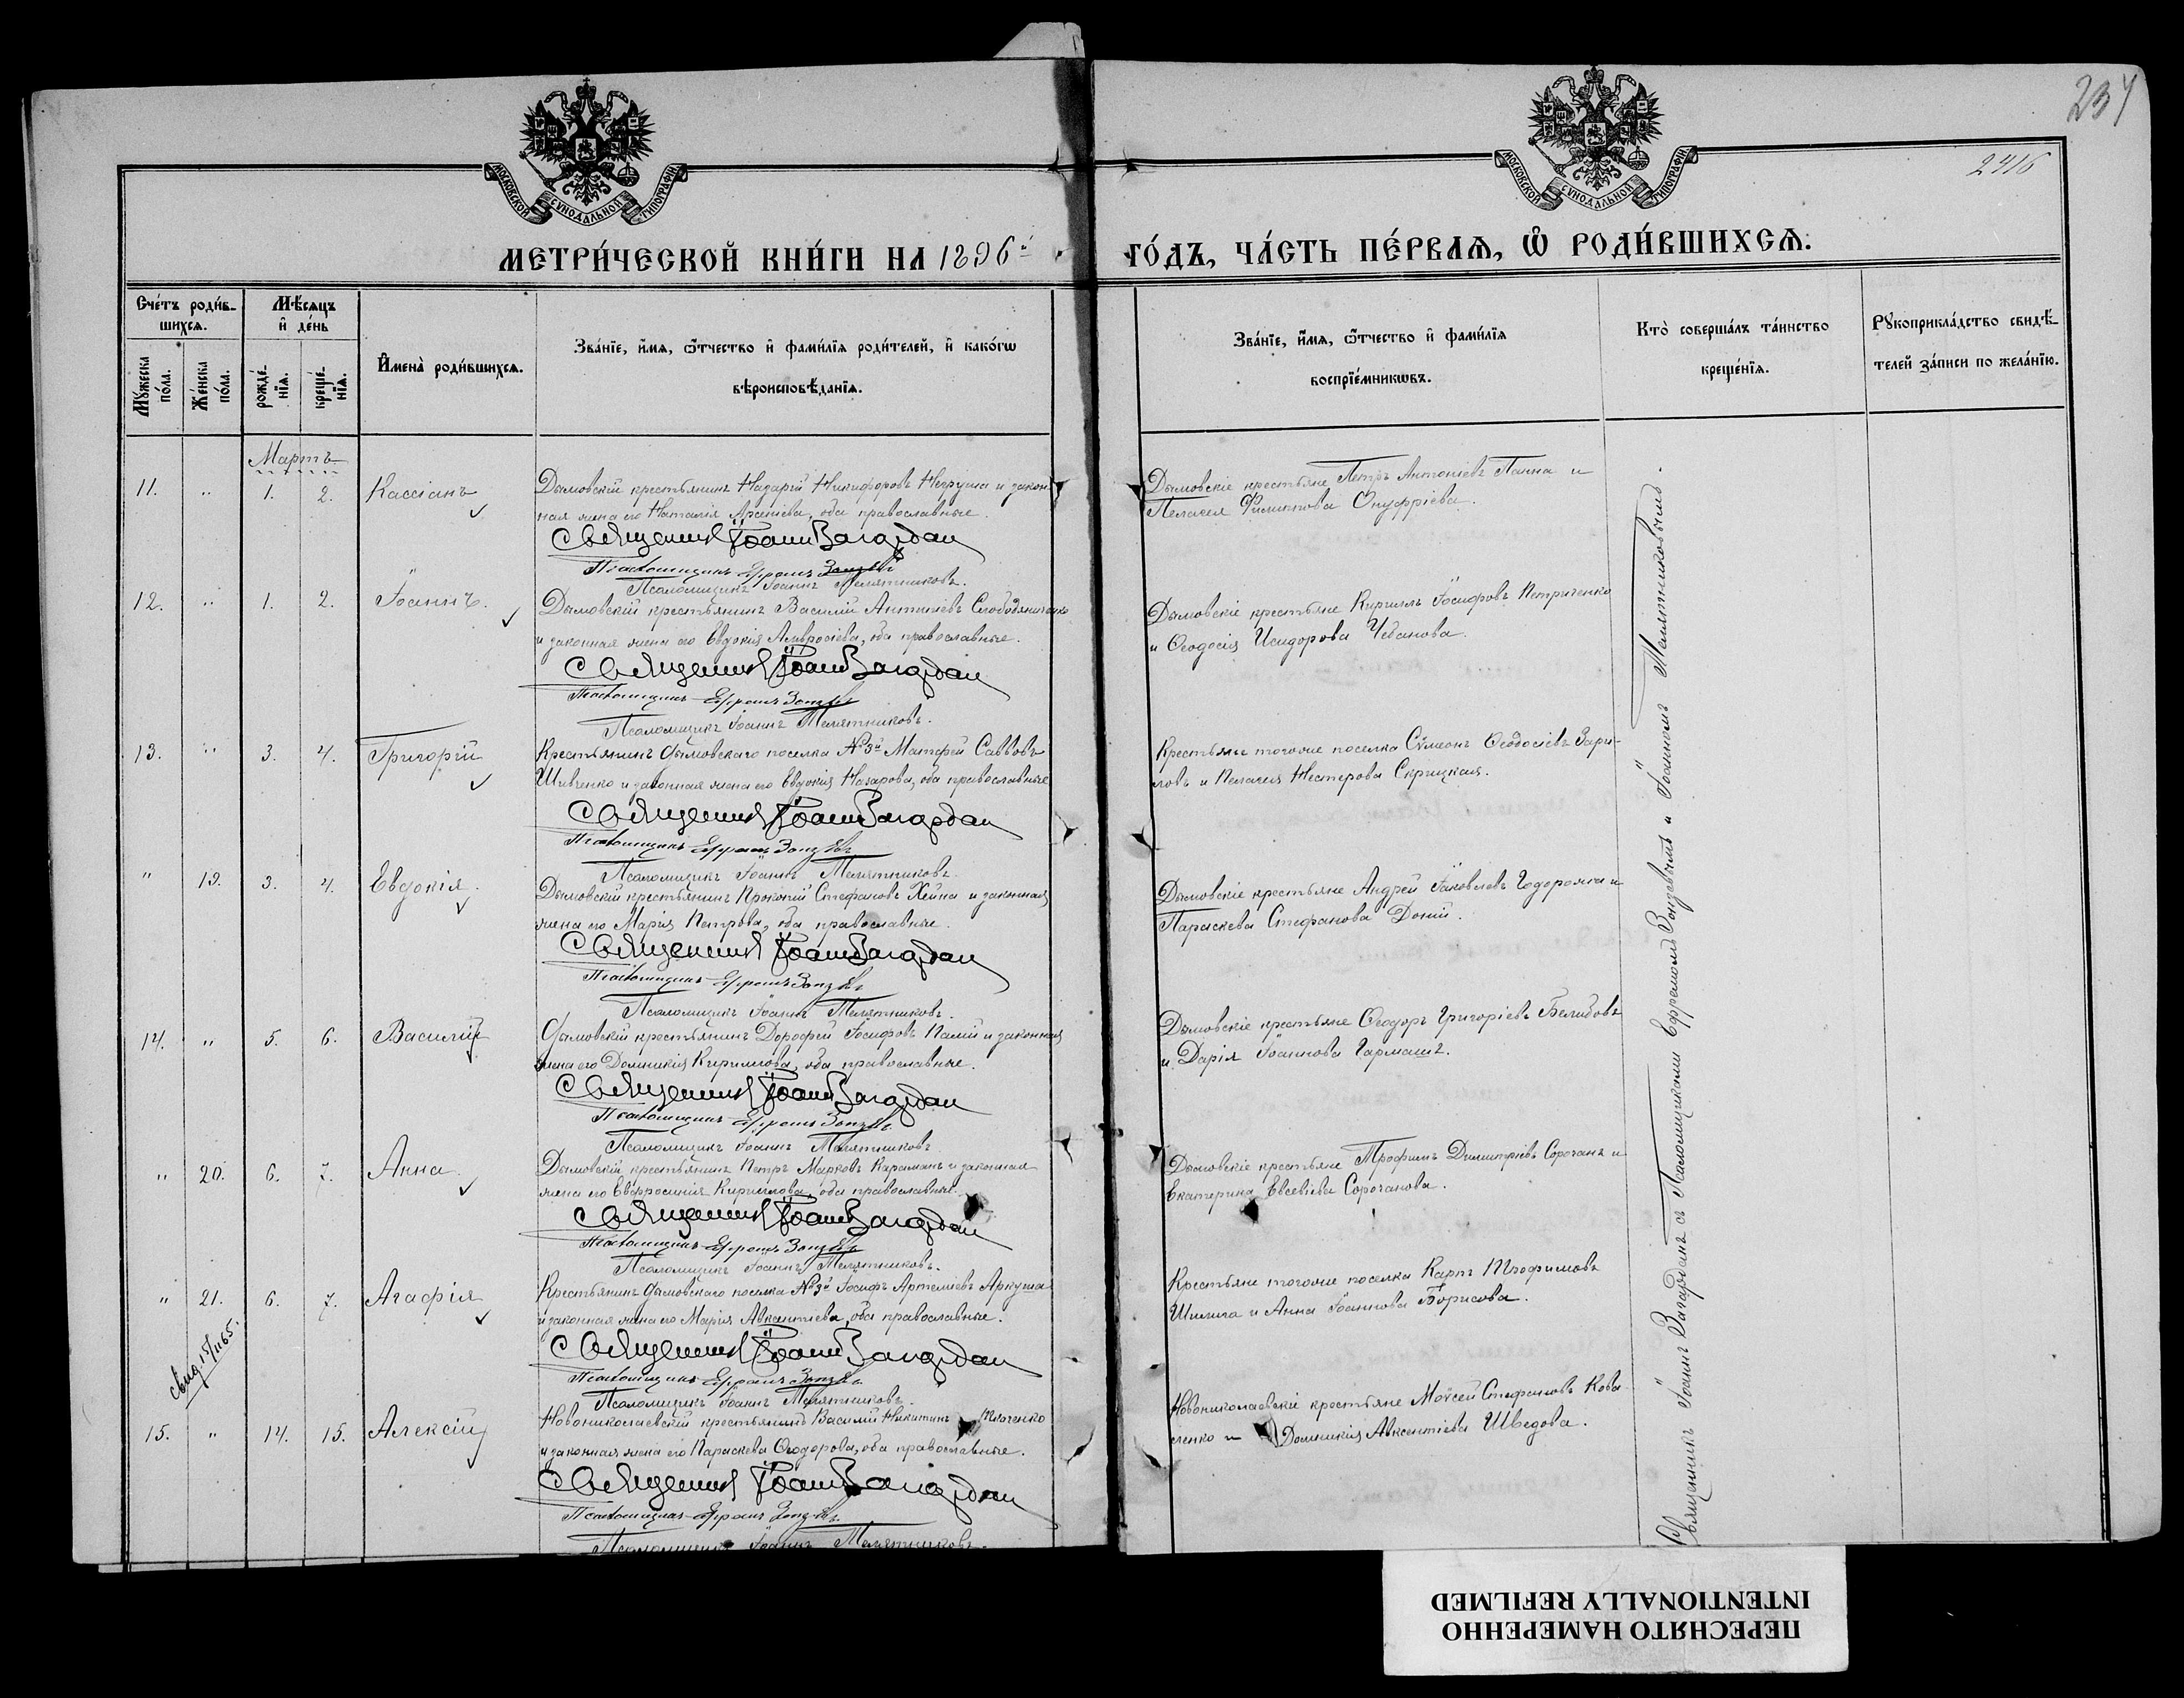 234
2416
МОСКОВСКОЙ СУНОДАЛЬНОЙ ТИПОГРАФІИ
МОСКОВСКОЙ СУНОДАЛЬНОЙ ТИПОГРАФІИ
МЕТРИ́ЧЕСКОЙ КНИ́ГИ НА 1896й ГО́ДЪ, ЧА́СТЬ ПЕ́РВАѦ, Ѡ҆ РОДИ́ВШИХСѦ.
Сче́тъ роди́в-
шихсѧ.
Мꙋ́жеска по́ла.
Же́нска по́ла.
Мѣ́сѧцъ
и҆ де́нь
рожде́-
нїѧ.
креще́-
нїѧ.
И҆мена̀ роди́вшихсѧ.
Зва́нїе, и҆́мѧ, ѻ҆́тчество и҆ фами́лїѧ роди́телей, и҆ како́гѡ
вѣроисповѣ́данїѧ.
Зва́нїе, и҆́мѧ, ѻ҆́тчество и҆ фами́лїѧ
воспрїе́мникѡвъ.
Кто̀ соверша́лъ та́инство
креще́нїѧ.
Рꙋкоприкла́дство свидѣ́-
телей за́писи по жела́нїю.
Мартъ
11. " 1. 2. Кассіанъ
Дымовскій крестьянинъ Назарій Никифоровъ Негруша и закон-
ная жена его Наталія Арсеніева, оба православные.
Священникъ Іоаннъ Вагардан
Псаломщикъ Ефремъ
Псаломщикъ Іоаннъ Мелятниковъ.
Дымовскіе крестьяне Петръ Антоніевъ Панна и
Пелагея Филиппова Онуфріева.
12. " 1. 2. Іоаннъ.
Дымовскій крестьянинъ Василій Слободяниченко
и законная жена его Евдокія Амвросіева, оба православные.
Священникъ Іоаннъ Вагардан
Псаломщикъ Ефремъ
Псаломщикъ Іоаннъ Мелятниковъ.
Дымовскіе крестьяне Кириллъ Іосифовъ Петриченко
и Ѳеодосія Исидорова Чебанова.
13. " 3. 4. Григорій
Крестьянинъ Дымовскаго поселка № 3й Матѳей Савовъ
Шевченко и законная жена его Евдокія Назарова, оба православные
Священникъ Іоаннъ Вагардан
Псаломщикъ Ефремъ
Псаломщикъ Іоаннъ Мелятниковъ.
Крестьяне тогоже поселка Сѵмеонъ Ѳеодосіевъ
и Пелагея Нестерова Скрицкая.
" 19. 3. 4. Евдокія.
Дымовскій крестьянинъ Прокопій Стефановъ Хейна и законная
жена его Марія Петрова, оба православные.
Священникъ Іоаннъ Вагардан
Псаломщикъ Ефремъ
Псаломщикъ Іоаннъ Мелятниковъ.
Дымовскіе крестьяне Андрей Іаковлевъ Годорожа и
Параскева Стефанова Доній.
14. " 5. 6. Василій
Дымовскій крестьянинъ Дорофей Іосифовъ Палій и законная
жена его Домникія Кириллова, оба православные.
Священникъ Іоаннъ Вагардан
Псаломщикъ Ефремъ
Псаломщикъ Іоаннъ Мелятниковъ
Дымовскіе крестьяне Ѳеодоръ Григоріевъ
и Дарія Іоаннова Гармашъ.
" 20. 6. 7. Анна.
Дымовскій крестьянинъ Петръ Марковъ Караманъ и законная
жена его Евфросинія Кириллова, оба православные.
Священникъ Іоаннъ Вагардан
Псаломщикъ Ефремъ
Псаломщикъ Іоаннъ Мелятниковъ.
Дымовскіе крестьяне Трофимъ Димитріевъ Сорочанъ и
Екатерина Евсевіева Сорочанова.
" 21. 6. 7. Агафія
Крестьянинъ Дымовскаго поселка № 3й Іосифъ Артеміевъ Аркуша
и законная жена его Марія Авксентіева, оба православные.
Священникъ Іоаннъ Вагардан
Псаломщикъ Ефремъ
Псаломщикъ Іоаннъ Мелятниковъ.
Крестьяне тогоже поселка Карпъ Трофимовъ
и Анна Іоаннова Борисова.
15. " 14. 15. Алексій
Новониколаевскій крестьянинъ Василій Никитинъ
и законная жена его Параскева Ѳеодорова, оба православные.
Священникъ Іоаннъ Вагардан
Псаломщикъ Ефремъ
Псаломщикъ Іоаннъ Мелятниковъ.
Новониколаевскіе крестьяне Моѵсей Стефановъ Кова-
ленко и Домникія Авксентіева Шведова.
Священникъ Іоаннъ Вагарданъ съ Псаломщиками Ефремомъ и Іоанномъ Мелятниковымъ.
ПЕРЕСНЯТО НАМЕРЕННО
INTENTIONALLY REFILMED